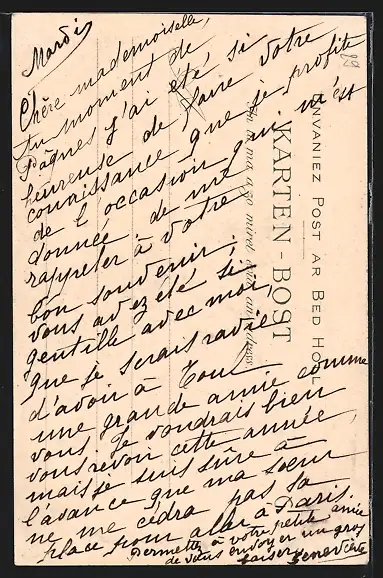 Mardi
Chère mademoiselle,
Au moment de
Pâques j'ai été si
heureuse de faire votre
connaissance que je profite
de l'occasion qui m'est
donnée de me
rappeler à votre
bon souvenir;
vous avez été si
gentille avec moi,
que je serais ravie
d'avoir à Tours
une grande amie comme
vous. Je voudrais bien
vous revoir cette année,
mais je suis sûre à
l'avance que ma sœur
ne me cédra pas sa
place pour aller à Paris.
Permettez à votre petite amie
de vous envoyer un gros
baiser Geneviève
UNVANIEZ POST AR BED HOLL
KARTEN-BOST